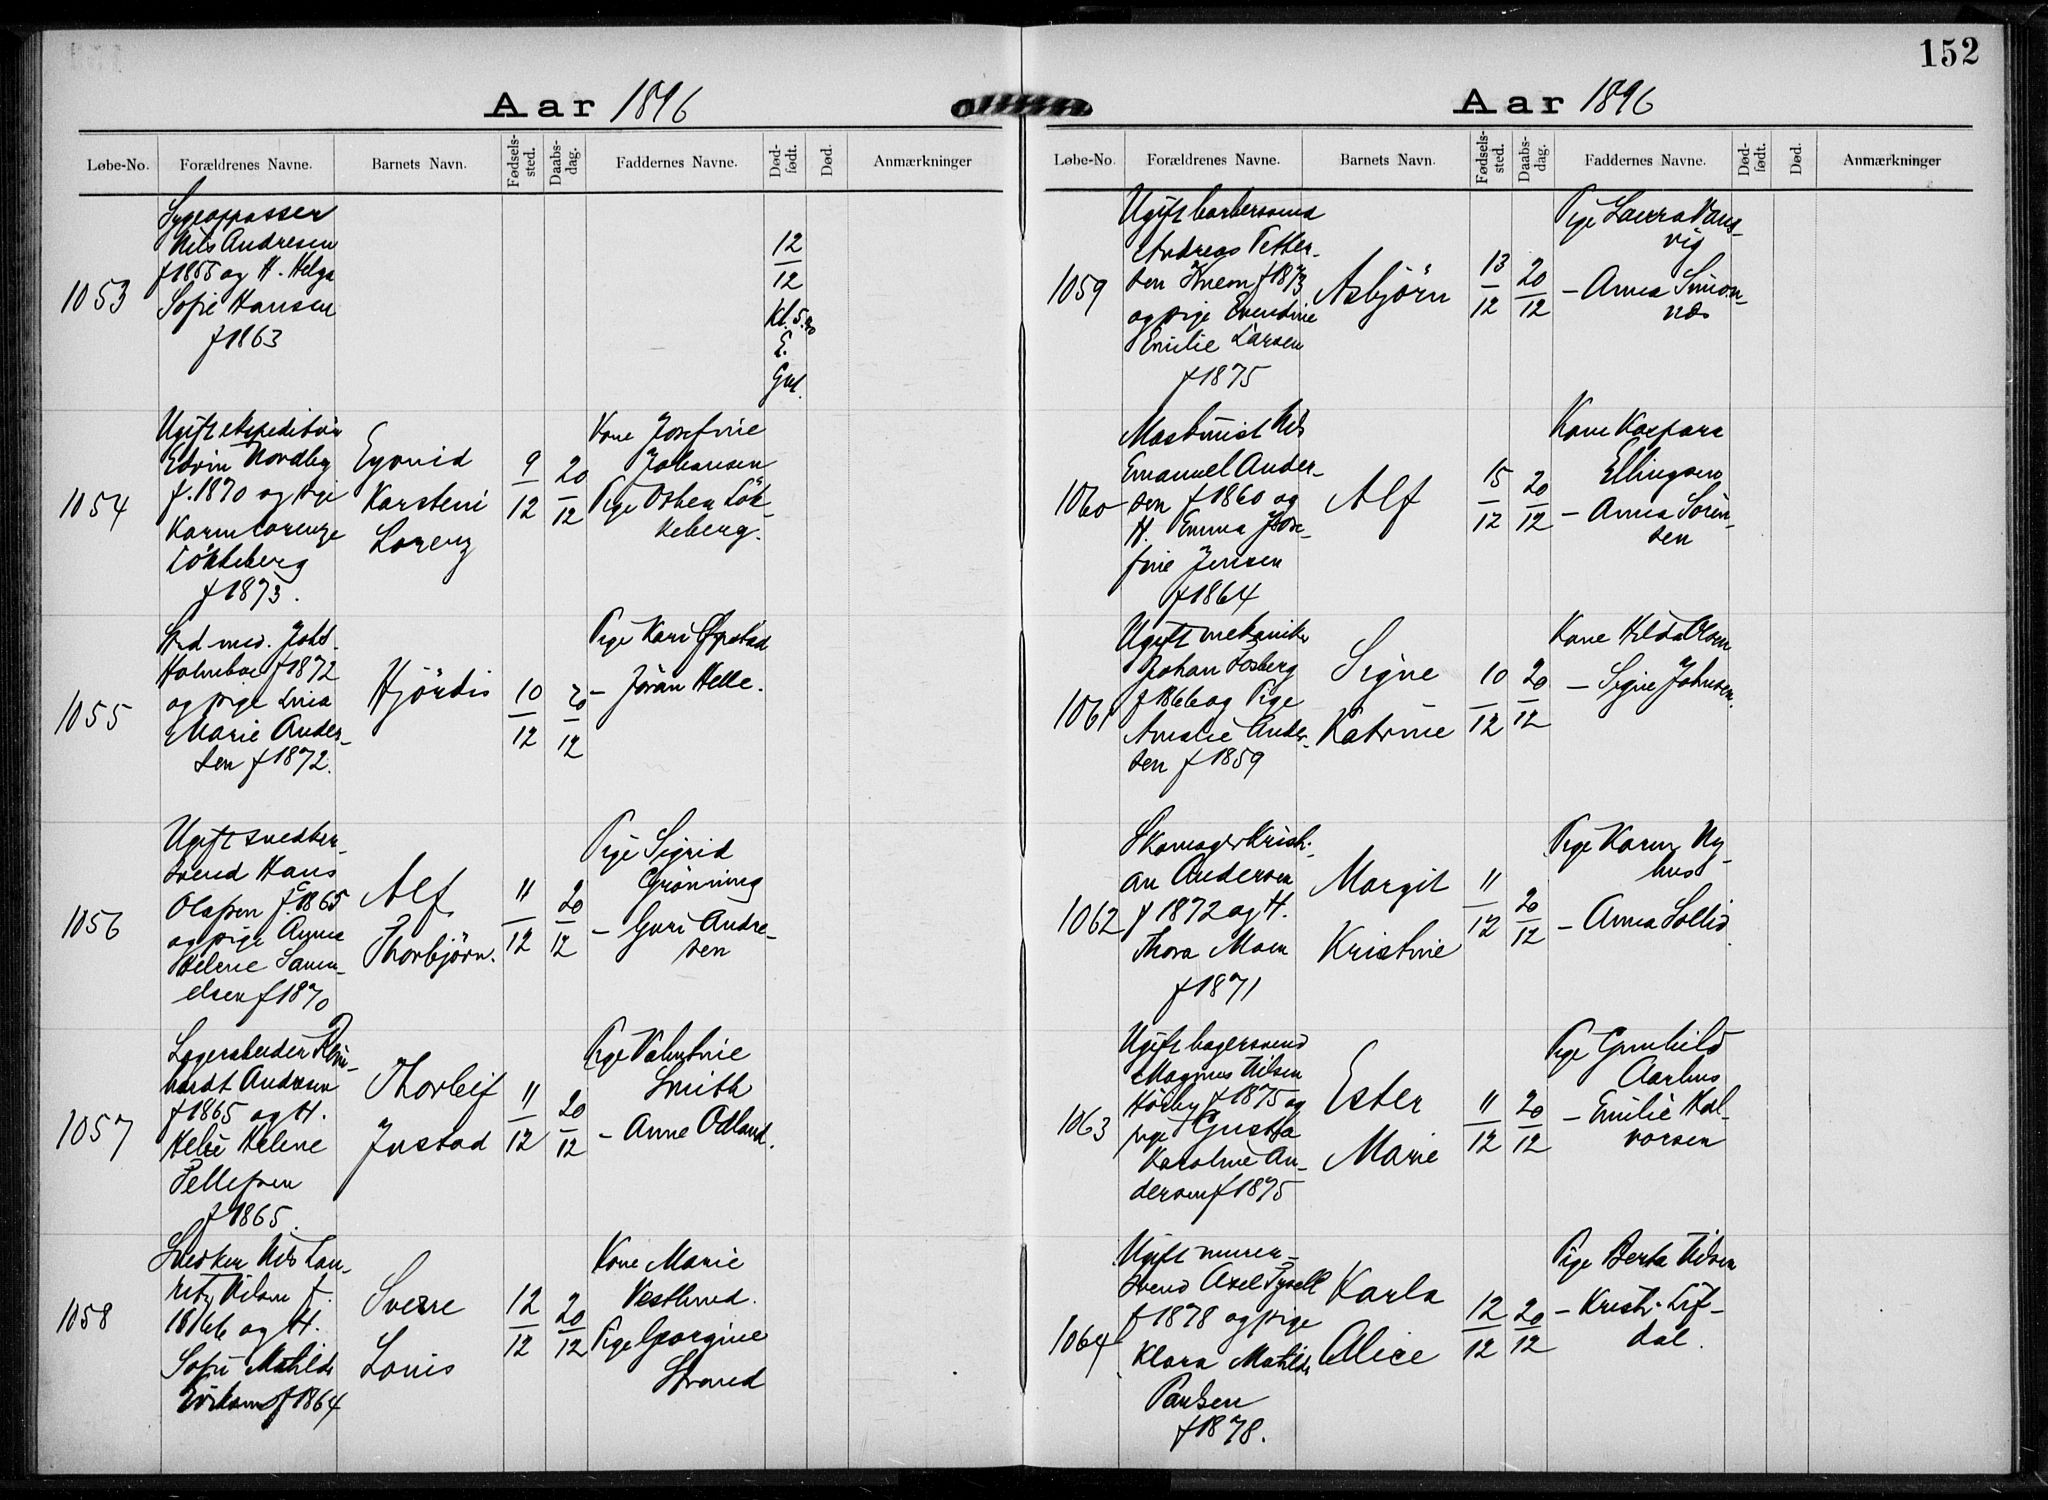 152
Aar 1896
Løbe-No. Forældrenes Navne. Barnets Navn. Fødsels-sted. Daabs-dag. Faddernes Navne. Død-født. Død. Anmærkninger
1053
Sygeopasser
Nils Andresen
f 1855 og H. Helga
Sofie Hansen
f 1863
12/12
Kl. 5.40
E.
Gut.
1054
Ugift ekspeditør
Edvin Nordby
f. 1870 og pige
Karen Lorenze
Lökkeberg
f 1873.
Eyvind
Karsteni
Lorenz
9/12
20/12
Kone Josefine
Johansen
Pige Osben Lök-
keberg.
1055
Stud. med. Johs.
Holmboe f 1872
og pige Lina
Marie Ander-
sen f 1872.
Hjördis
10/12
20/12
Pige Kari Opstad
— Jöran Helle.
1056
Ugift snedker-
svend Hans
Olafsen f. 1865
og pige Anna
Helene Samu-
elsen f 1870
Alf
Thorbjørn.
11/12
20/12
Pige Sigrid
Grønning
— Guri Andre-
sen
1057
Lagerarbeider Rein-
hardt Andresen
f 1865 og H.
Helene
Pellefsen
f 1865.
Thorleif
Justad
11/12
20/12
Pige Valentine
Smith
— Anne Odland.
1058
Snedker Nils Lau-
ritz Nilsen f.
1866 og H.
Sofie Matilde
Eriksen f 1864
Sverre
Louis
12/12
20/12
Kone Marie
Vestlund.
Pige Georgine
Strand
Aar 1896
Løbe-No. Forældrenes Navne. Barnets Navn. Fødsels-sted. Daabs-dag. Faddernes Navne. Død-født. Død. Anmærkninger
1059
Ugift barbersvend
Andreas Petter-
sen f 1873
og pige
Emilie Larsen
f 1875
Asbjørn
13/12
20/12
Pige Laura Vans-
vig
— Anna Simon-
næs
1060
Maskinist Nils
Emanuel Ander-
sen f 1860 og
H. Emma Jose-
fine Jensen
f 1864
Alf
15/12
20/12
Kone Kaspara
Ellingsen
— Anna Sören-
sen
1061
Ugift mekaniker
Johan Fosberg
f 1866 og Pige
Amalie Ander-
sen f 1859
Signe
Katrine
10/12
20/12
Kone Hilda Olsen
— Signe Johnsen.
1062
Skomager Kristi-
an Andersen
f 1872 og H.
Thora Moen
f 1871
Margit
Kristine
11/12
20/12
Pige Karen Ny-
hus
— Anna Sollid.
1063
Ugift bagersvend
Magnus Nilsen
Höiby f 1875 og
pige Gusta
Karoline An-
dersen f 1875
Ester
Marie
11/12
20/12
Pige Gunhild
Aarhus
— Emilie Hal-
vorsen
1064
Ugift murer-
svend Axel Tysell
f 1878 og pige
Klara Matilde
Paulsen
f 1878.
Karla
Alice
12/12
20/12
Pige Berta Nilsen
— Kristi Lif-
dal.